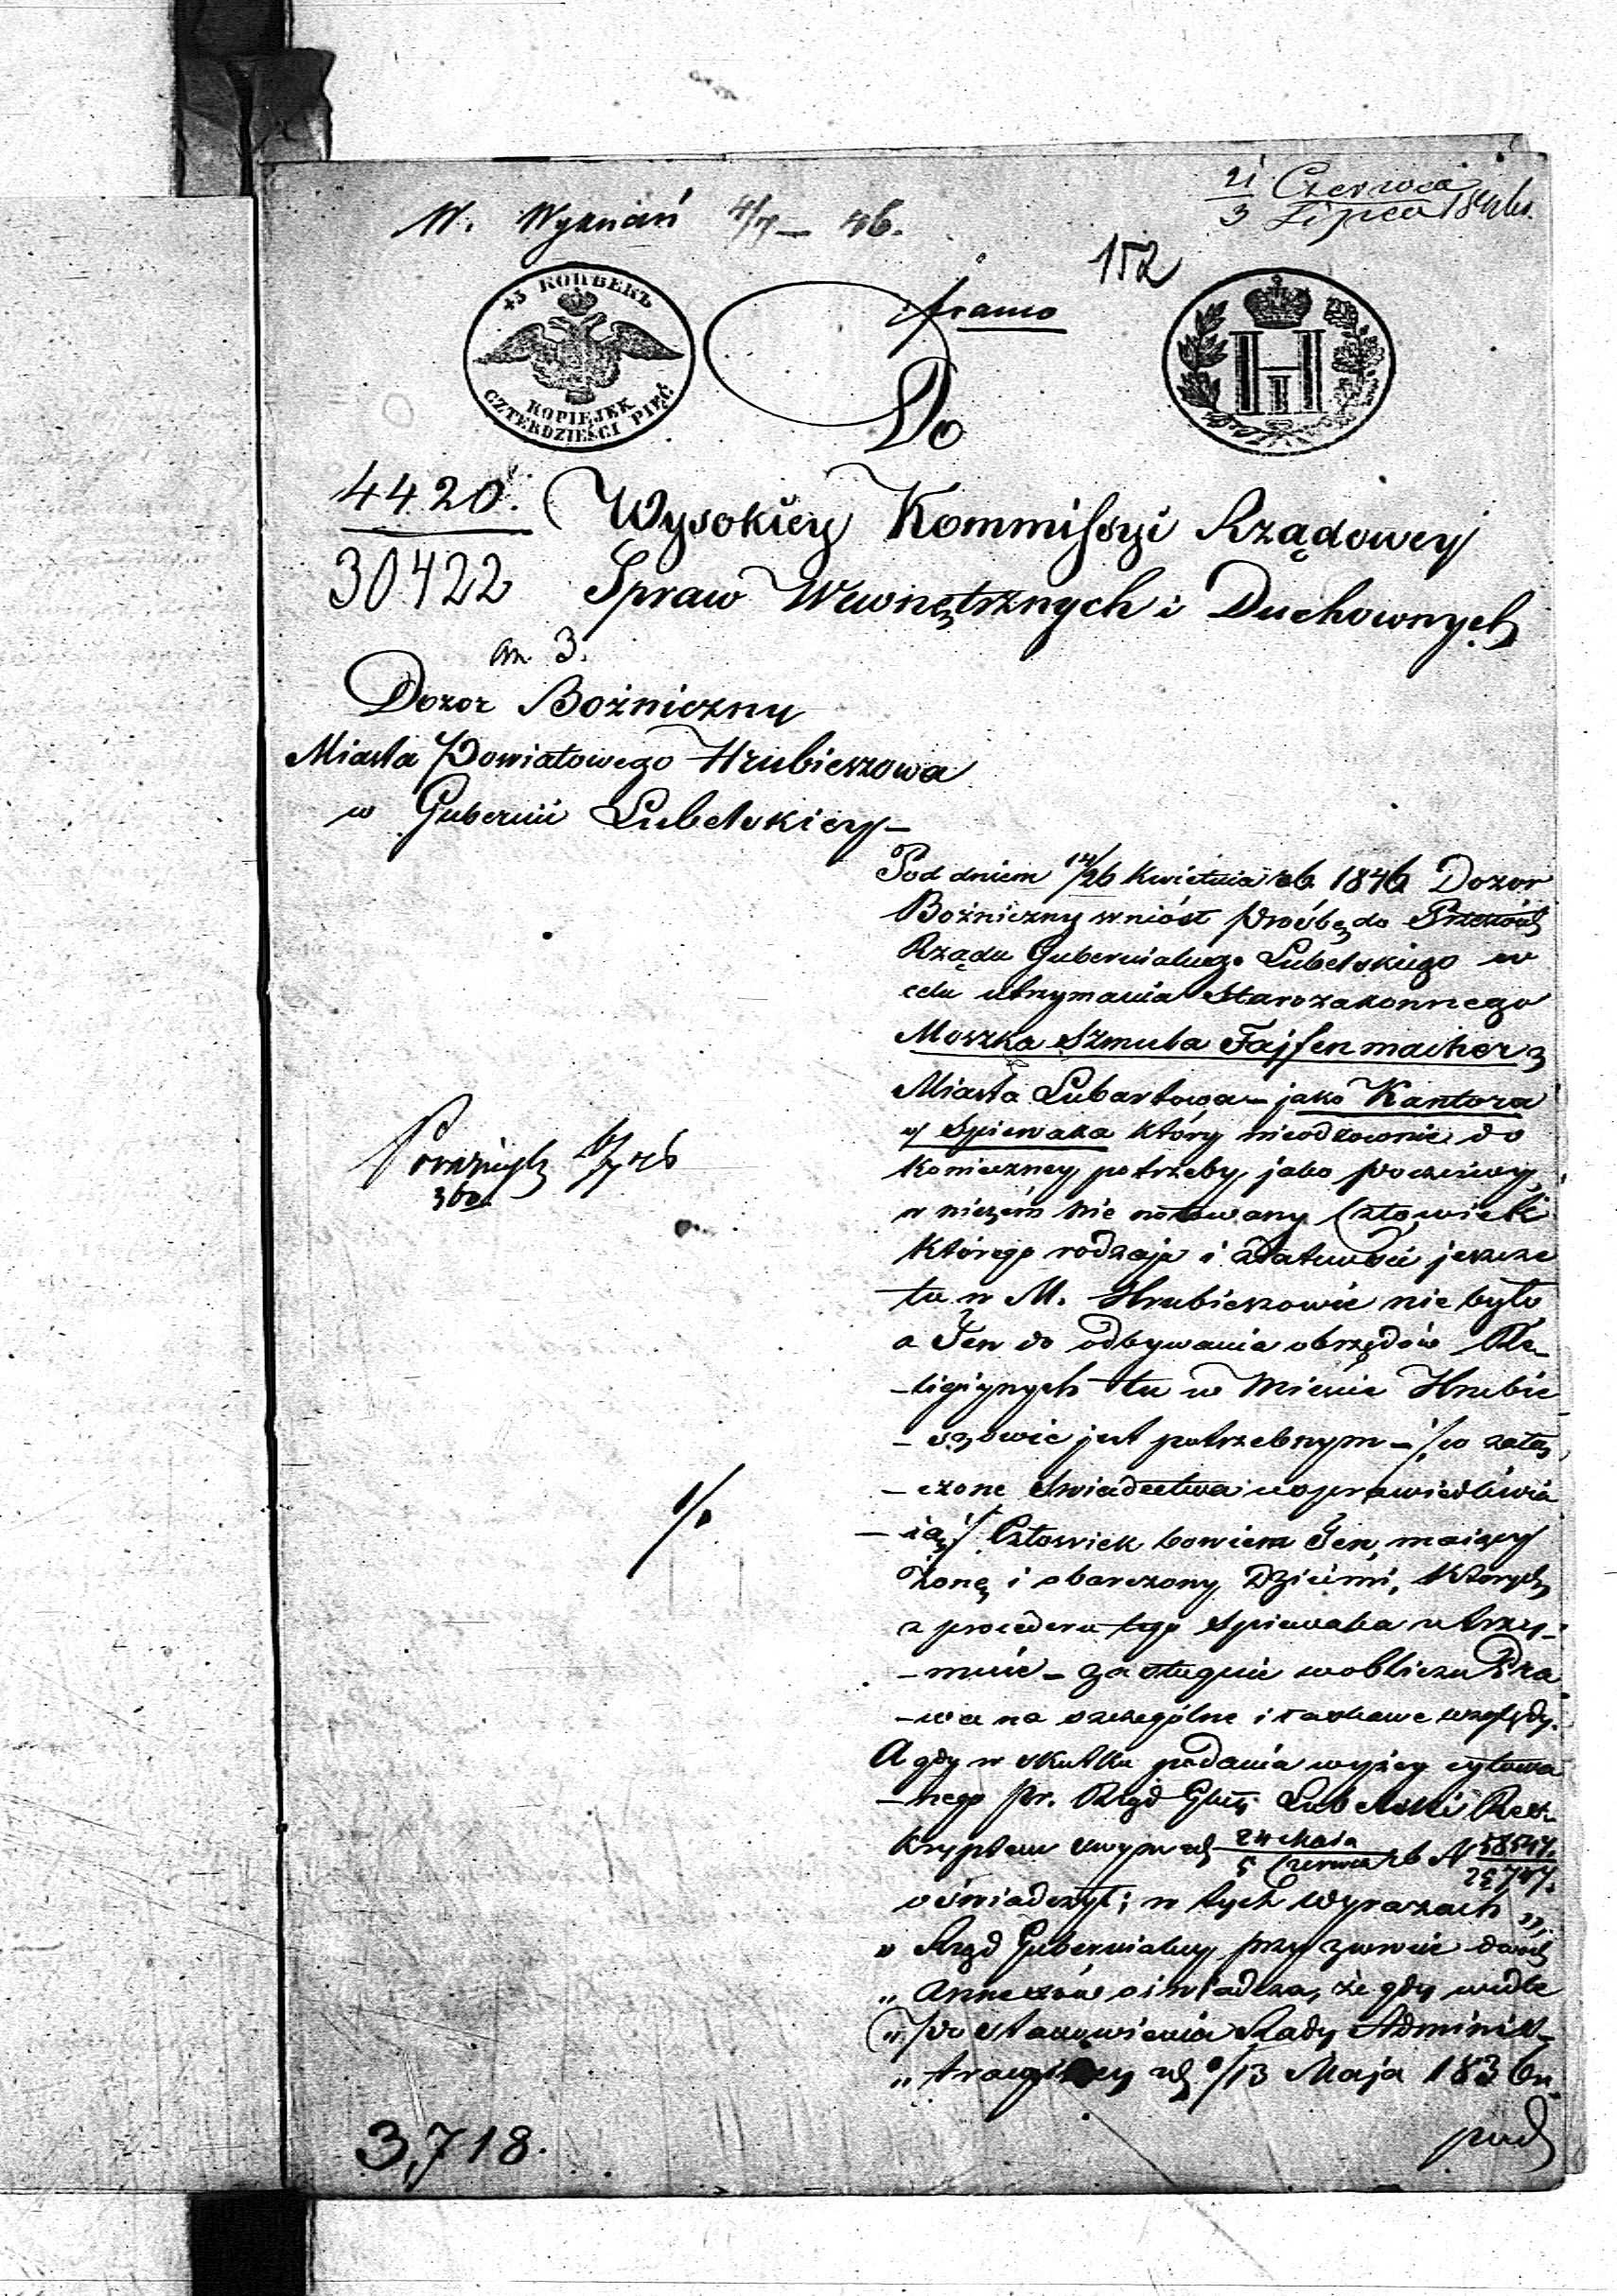 21 Czerwca
3 Lipca 1846.
W. Wyznań 4/7 – 46.
152
franco
45 КОПѢЕКЪ
KOPIEJEK
CZTERDZIEŚCI PIĘĆ
Н I
Do
4420.
30422
Wysokiey Kommissyi Rządowey
Spraw Wewnętrznych i Duchownych
an. 3.
Dozor Bożniczny
Miasta Powiatowego Hrubieszowa
w Gubernii Lubelskiey –
Pod dniem 14/26 Kwietnia rb. 1846 Dozor
Bożniczny wniósł prośbę do
Rządu Gubernialnego Lubelskiego w
celu utrzymania Starozakonnego
Moszka Szmula Fajfenmacher z
Miasta Lubartowa – jako Kantora
Spiewaka który nieodzownie do
Konieczney potrzeby, jako poczciwy,
w niczém nie notowany Człowiek
Którego rodzaju i jeszcze
tu w M. Hrubieszowie nie było
a Ten do odbywania obrzędów Re–
–ligijnych tu w Mieście Hrubie
–szowie jest potrzebnym – /: co załą
–czone świadectwa usprawiedliwia
–ią :/ Człowiek bowiem Ten, maiący
Żonę i obarczony Dziećmi, Których
z procederu tego Spiewaka utrzy–
–muie – zasługuie w obliczu Pra
–wa na szczególne i łaskawe względy.
A gdy w skutku podania wyżey cytowa
–nego Rząd Lubelski Res–
kryptem swym 24 Maia
5 Czerwca rb N 58547.
oświadczył; w tych wyrazach „
„ Rząd Gubernialny przy zwrocie
„ annexów oświadcza, że gdy wedle
„ postanowienia Rady Adminis–
„ tracyiney 1/13 Maja 1836 r.
pod
3,718.